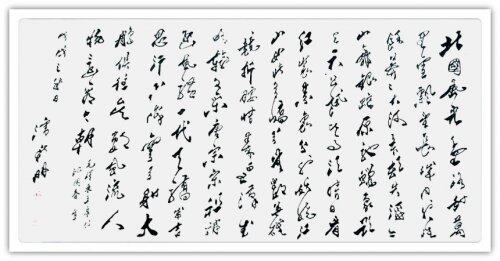 北國風光千里冰封萬
里雪飄望長城内外惟
餘莽莽大河上下頓失滔滔
山舞銀蛇原馳蠟象欲
與天公試比高須晴日看
紅裝素裹分外妖嬈江
山如此多嬌引無數英雄
競折腰惜秦皇漢武
略輸文采唐宗宋祖稍
遜風騷一代天驕成吉
思汗只識彎弓射大
雕俱往矣數風流人
物還看今朝
毛澤東
沁園春雪
戊戌